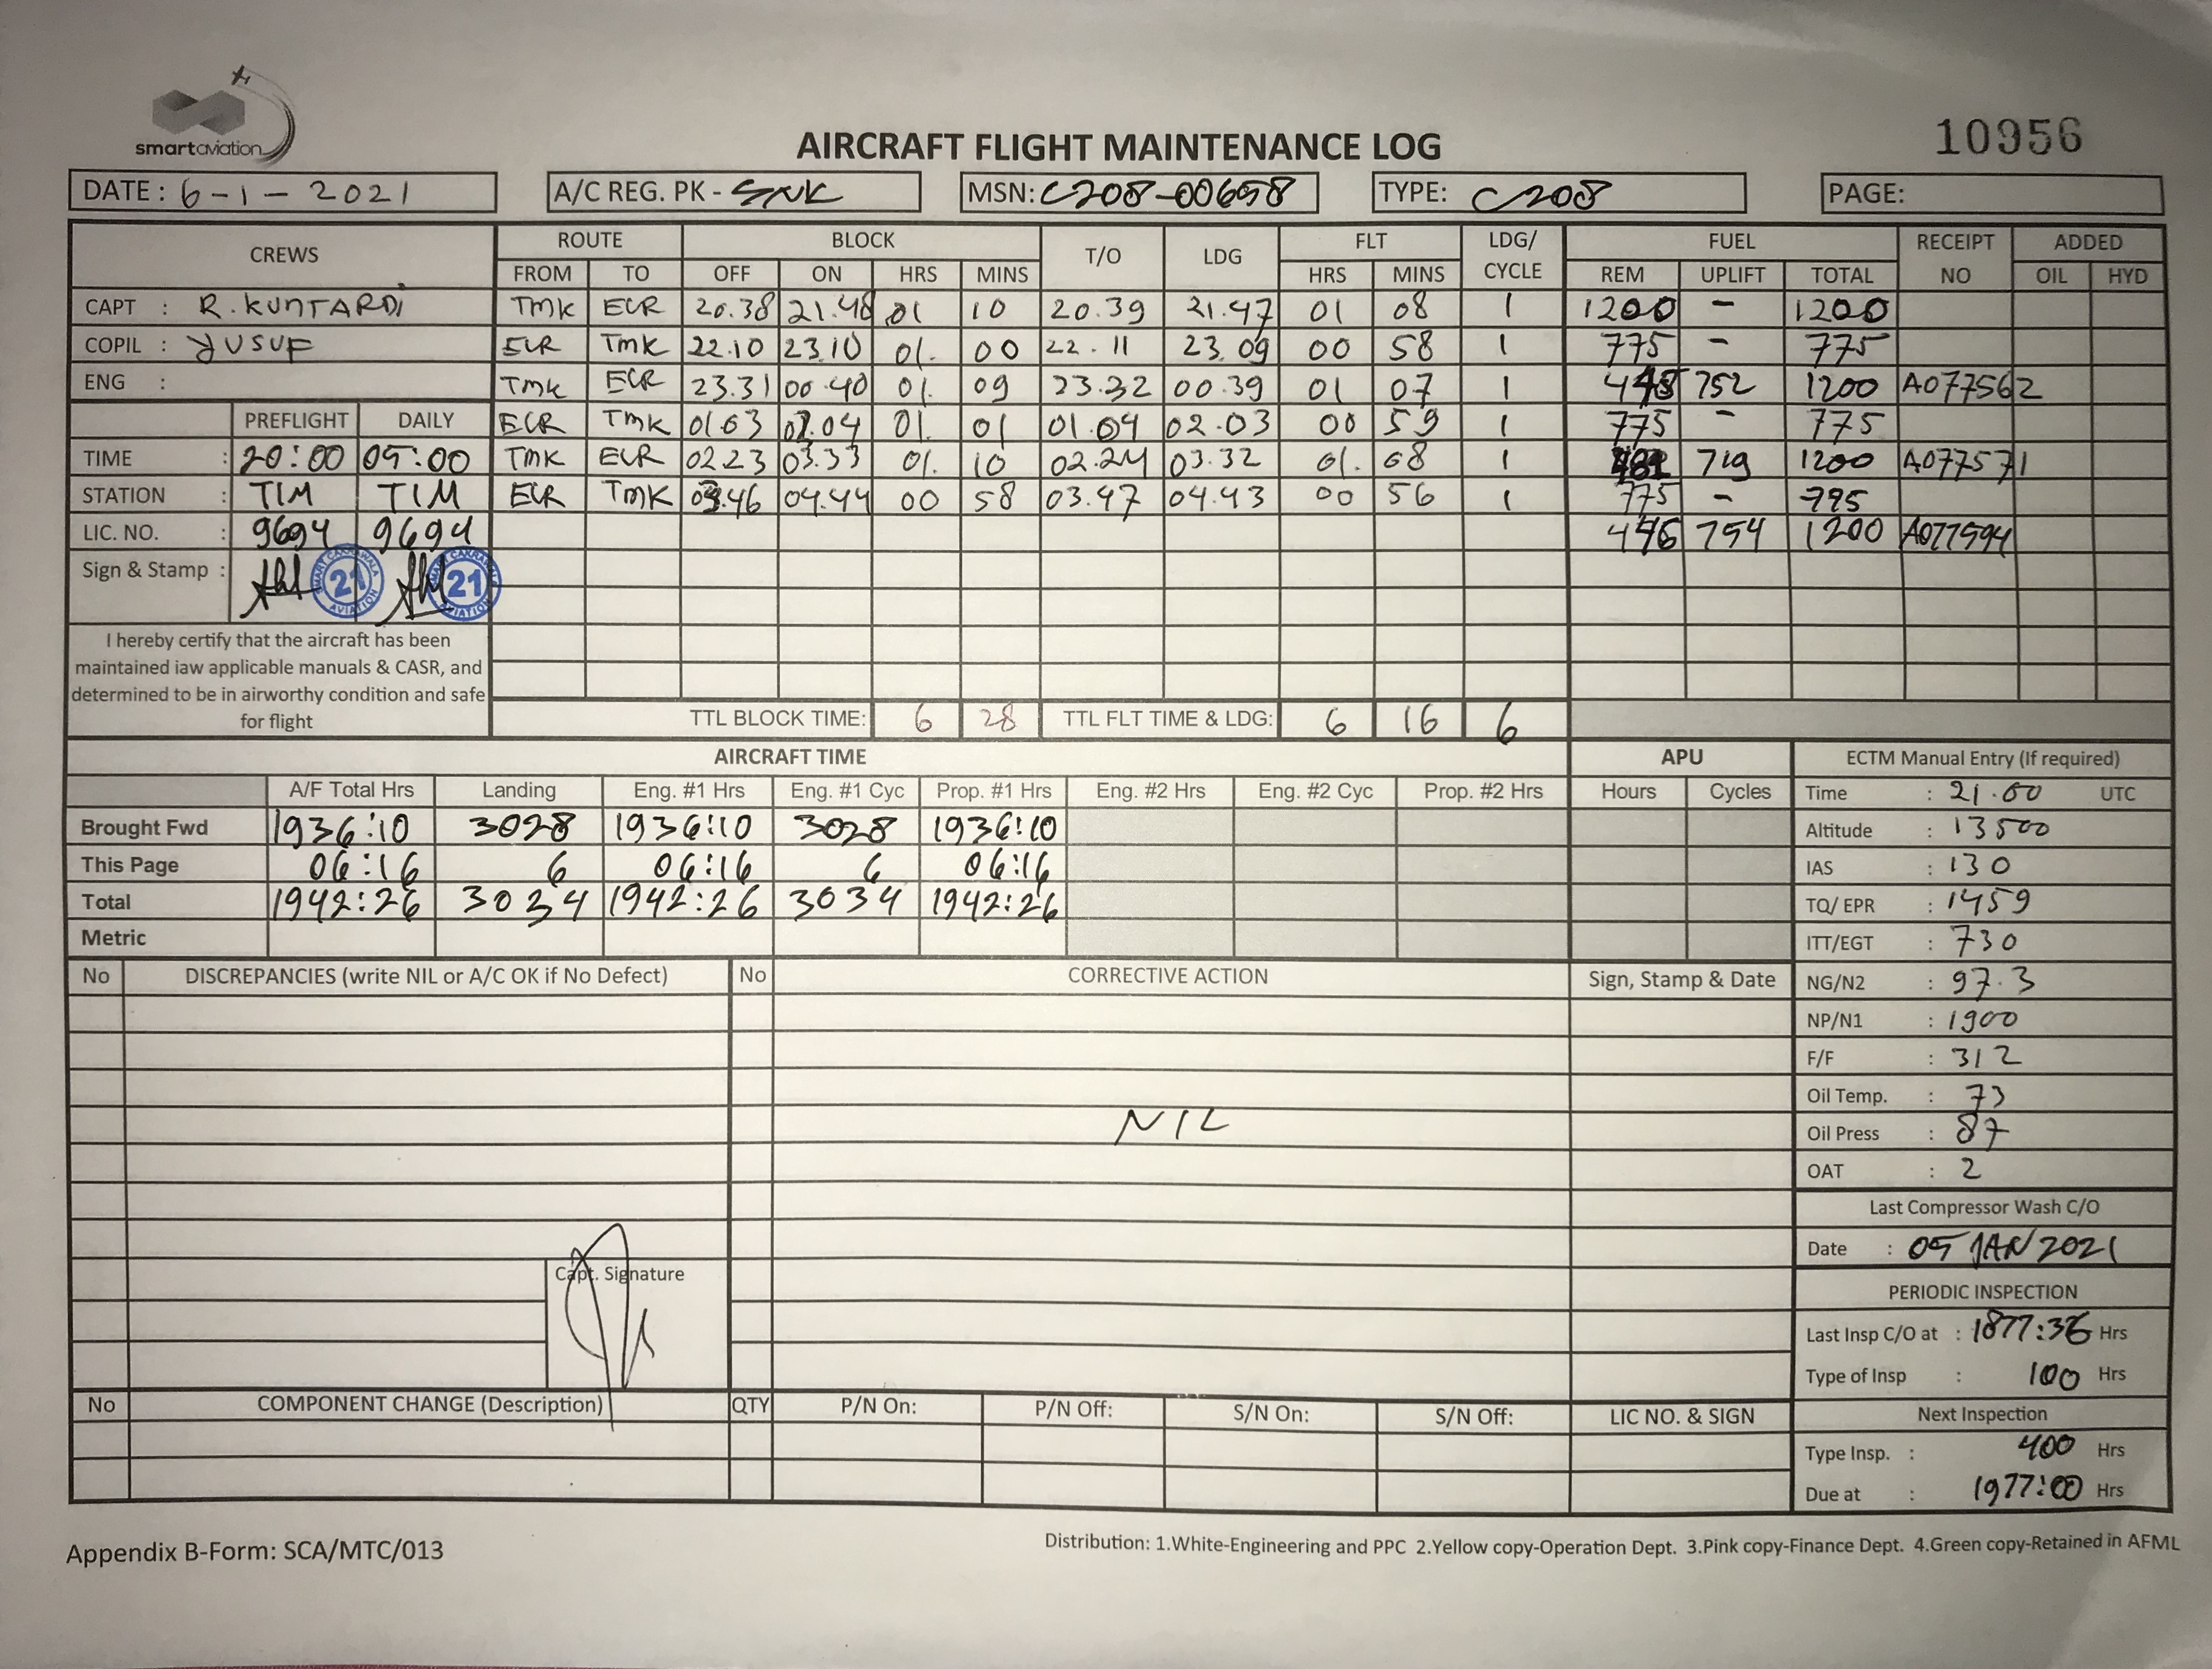 smartaviation
10956
AIRCRAFT FLIGHT MAINTENANCE LOG
DATE : 6-1-2021 A/C REG. PK - SNK MSN: C208-00658 TYPE: C208 PAGE:
CREWS ROUTE BLOCK T/O LDG FLT LDG/ CYCLE FUEL RECEIPT NO ADDED
FROM TO OFF ON HRS MINS HRS MINS REM UPLIFT TOTAL OIL HYD
CAPT : R. KUNTARDI TMK ECR 20.38 21.48 01 10 20.39 21.47 01 08 1 1200 - 1200
COPIL : YUSUF ECR TMK 22.10 23.10 01. 00 22.11 23.09 00 58 1 775 - 775
ENG : TMK ECR 23.31 00.40 01. 09 23.32 00.39 01 07 1 448 752 1200 A077562
PREFLIGHT DAILY ECR TMK 01.03 02.04 01. 01 01.04 02.03 00 59 1 775 - 775
TIME : 20:00 05:00 TMK ECR 02.23 03.33 01. 10 02.24 03.32 01. 08 1 481 719 1200 A077571
STATION : TIM TIM ECR TMK 03.46 04.44 00 58 03.47 04.43 00 56 1 775 - 775
LIC. NO. : 9694 9694 446 754 1200 A077594
Sign & Stamp : 21 21
I hereby certify that the aircraft has been
maintained iaw applicable manuals & CASR, and
determined to be in airworthy condition and safe
for flight
TTL BLOCK TIME: 6 28 TTL FLT TIME & LDG: 6 16 6
AIRCRAFT TIME APU ECTM Manual Entry (If required)
A/F Total Hrs Landing Eng. #1 Hrs Eng. #1 Cyc Prop. #1 Hrs Eng. #2 Hrs Eng. #2 Cyc Prop. #2 Hrs Hours Cycles Time : 21.00 UTC
Brought Fwd 1936:10 3028 1936:10 3028 1936:10 Altitude : 13500
This Page 06:16 6 06:16 6 06:16 IAS : 130
Total 1942:26 3034 1942:26 3034 1942:26 TQ/ EPR : 1459
Metric ITT/EGT : 730
No DISCREPANCIES (write NIL or A/C OK if No Defect) No CORRECTIVE ACTION Sign, Stamp & Date NG/N2 : 97.3
NP/N1 : 1900
F/F : 312
Oil Temp. : 73
NIL
Oil Press : 87
OAT : 2
Last Compressor Wash C/O
Date : 05 JAN 2021
Capt. Signature
PERIODIC INSPECTION
Last Insp C/O at : 1877:36 Hrs
Type of Insp : 100 Hrs
No COMPONENT CHANGE (Description) QTY P/N On: P/N Off: S/N On: S/N Off: LIC NO. & SIGN Next Inspection
Type Insp. : 400 Hrs
Due at : 1977:00 Hrs
Appendix B-Form: SCA/MTC/013
Distribution: 1.White-Engineering and PPC 2.Yellow copy-Operation Dept. 3.Pink copy-Finance Dept. 4.Green copy-Retained in AFML